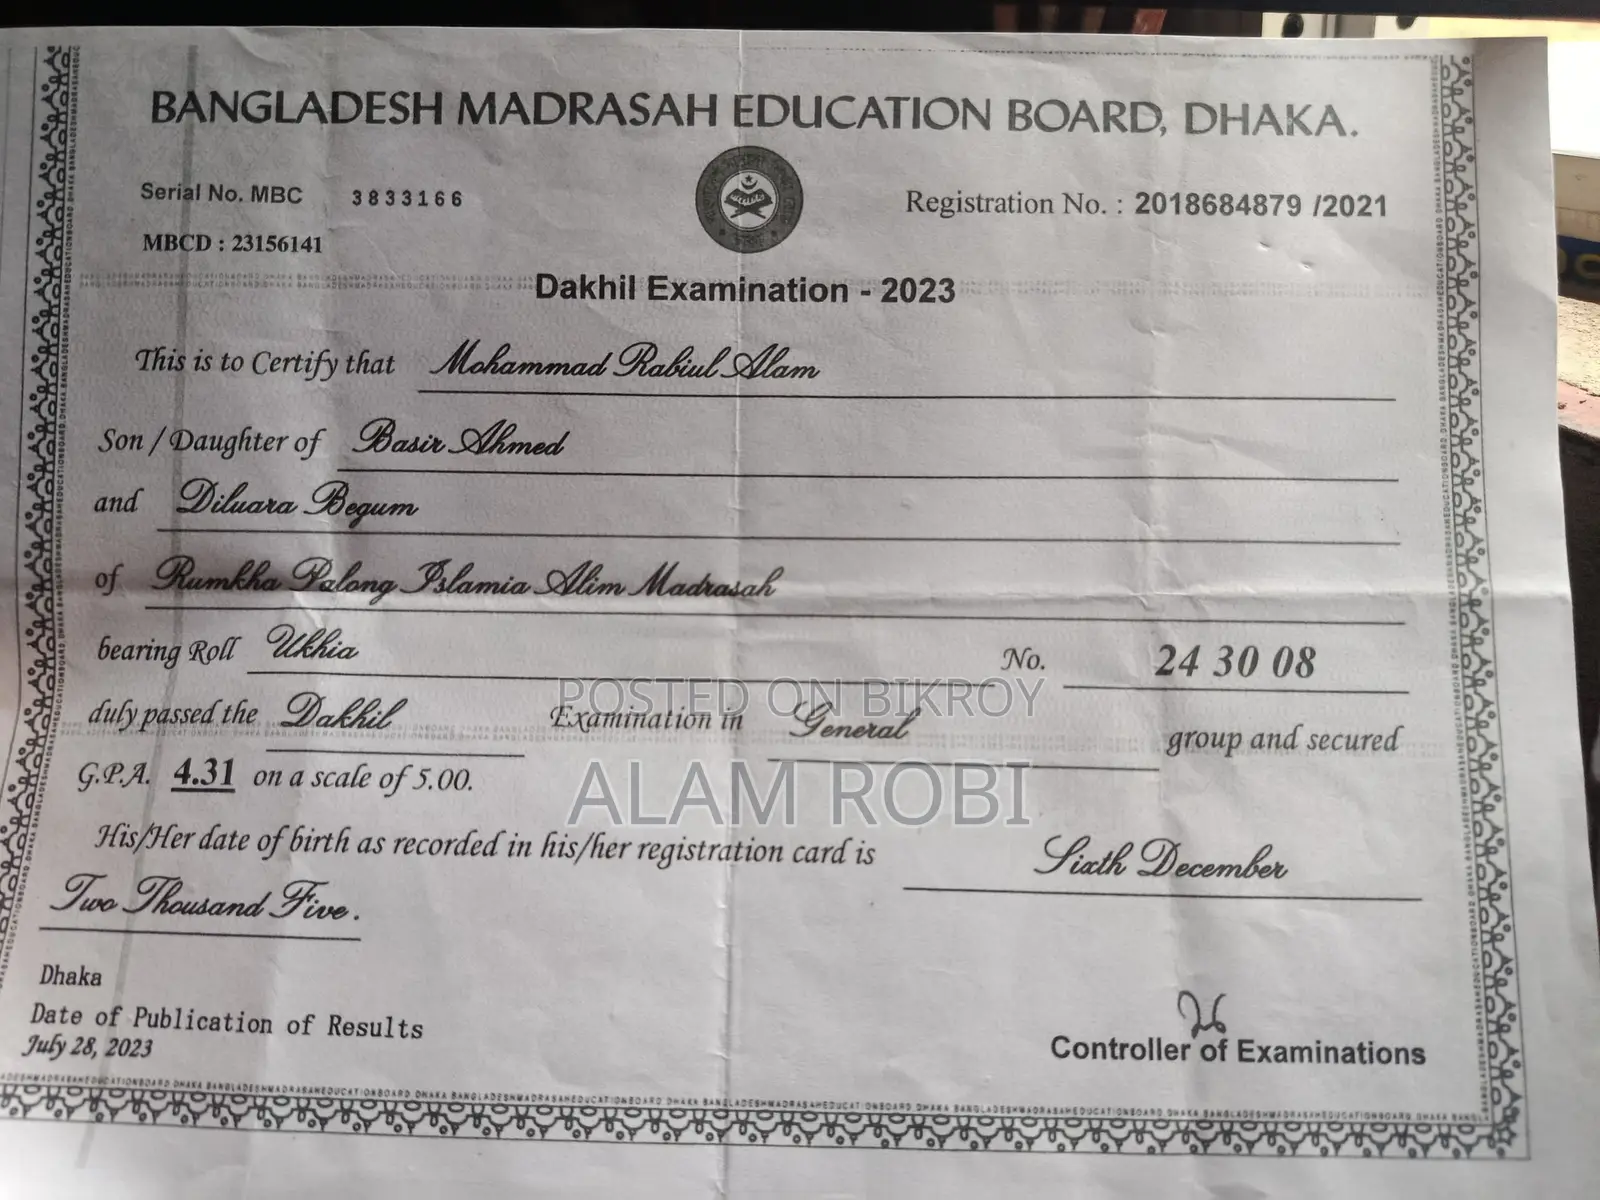 BANGLADESH MADRASAH EDUCATION BOARD, DHAKA.
Serial No. MBC 3833166
Registration No. : 2018684879 /2021
MBCD : 23156141
Dakhil Examination - 2023
This is to Certify that Mohammad Rabiul Alam
Son / Daughter of Basir Ahmed
and Diluara Begum
of Rumkha Palong Islamia Alim Madrasah
bearing Roll Ukhia No. 24 30 08
POSTED ON BIKROY
duly passed the Dakhil Examination in General group and secured
G.P.A. 4.31 on a scale of 5.00.
ALAM ROBI
His/Her date of birth as recorded in his/her registration card is Sixth December
Two Thousand Five.
Dhaka
Date of Publication of Results
July 28, 2023
Controller of Examinations